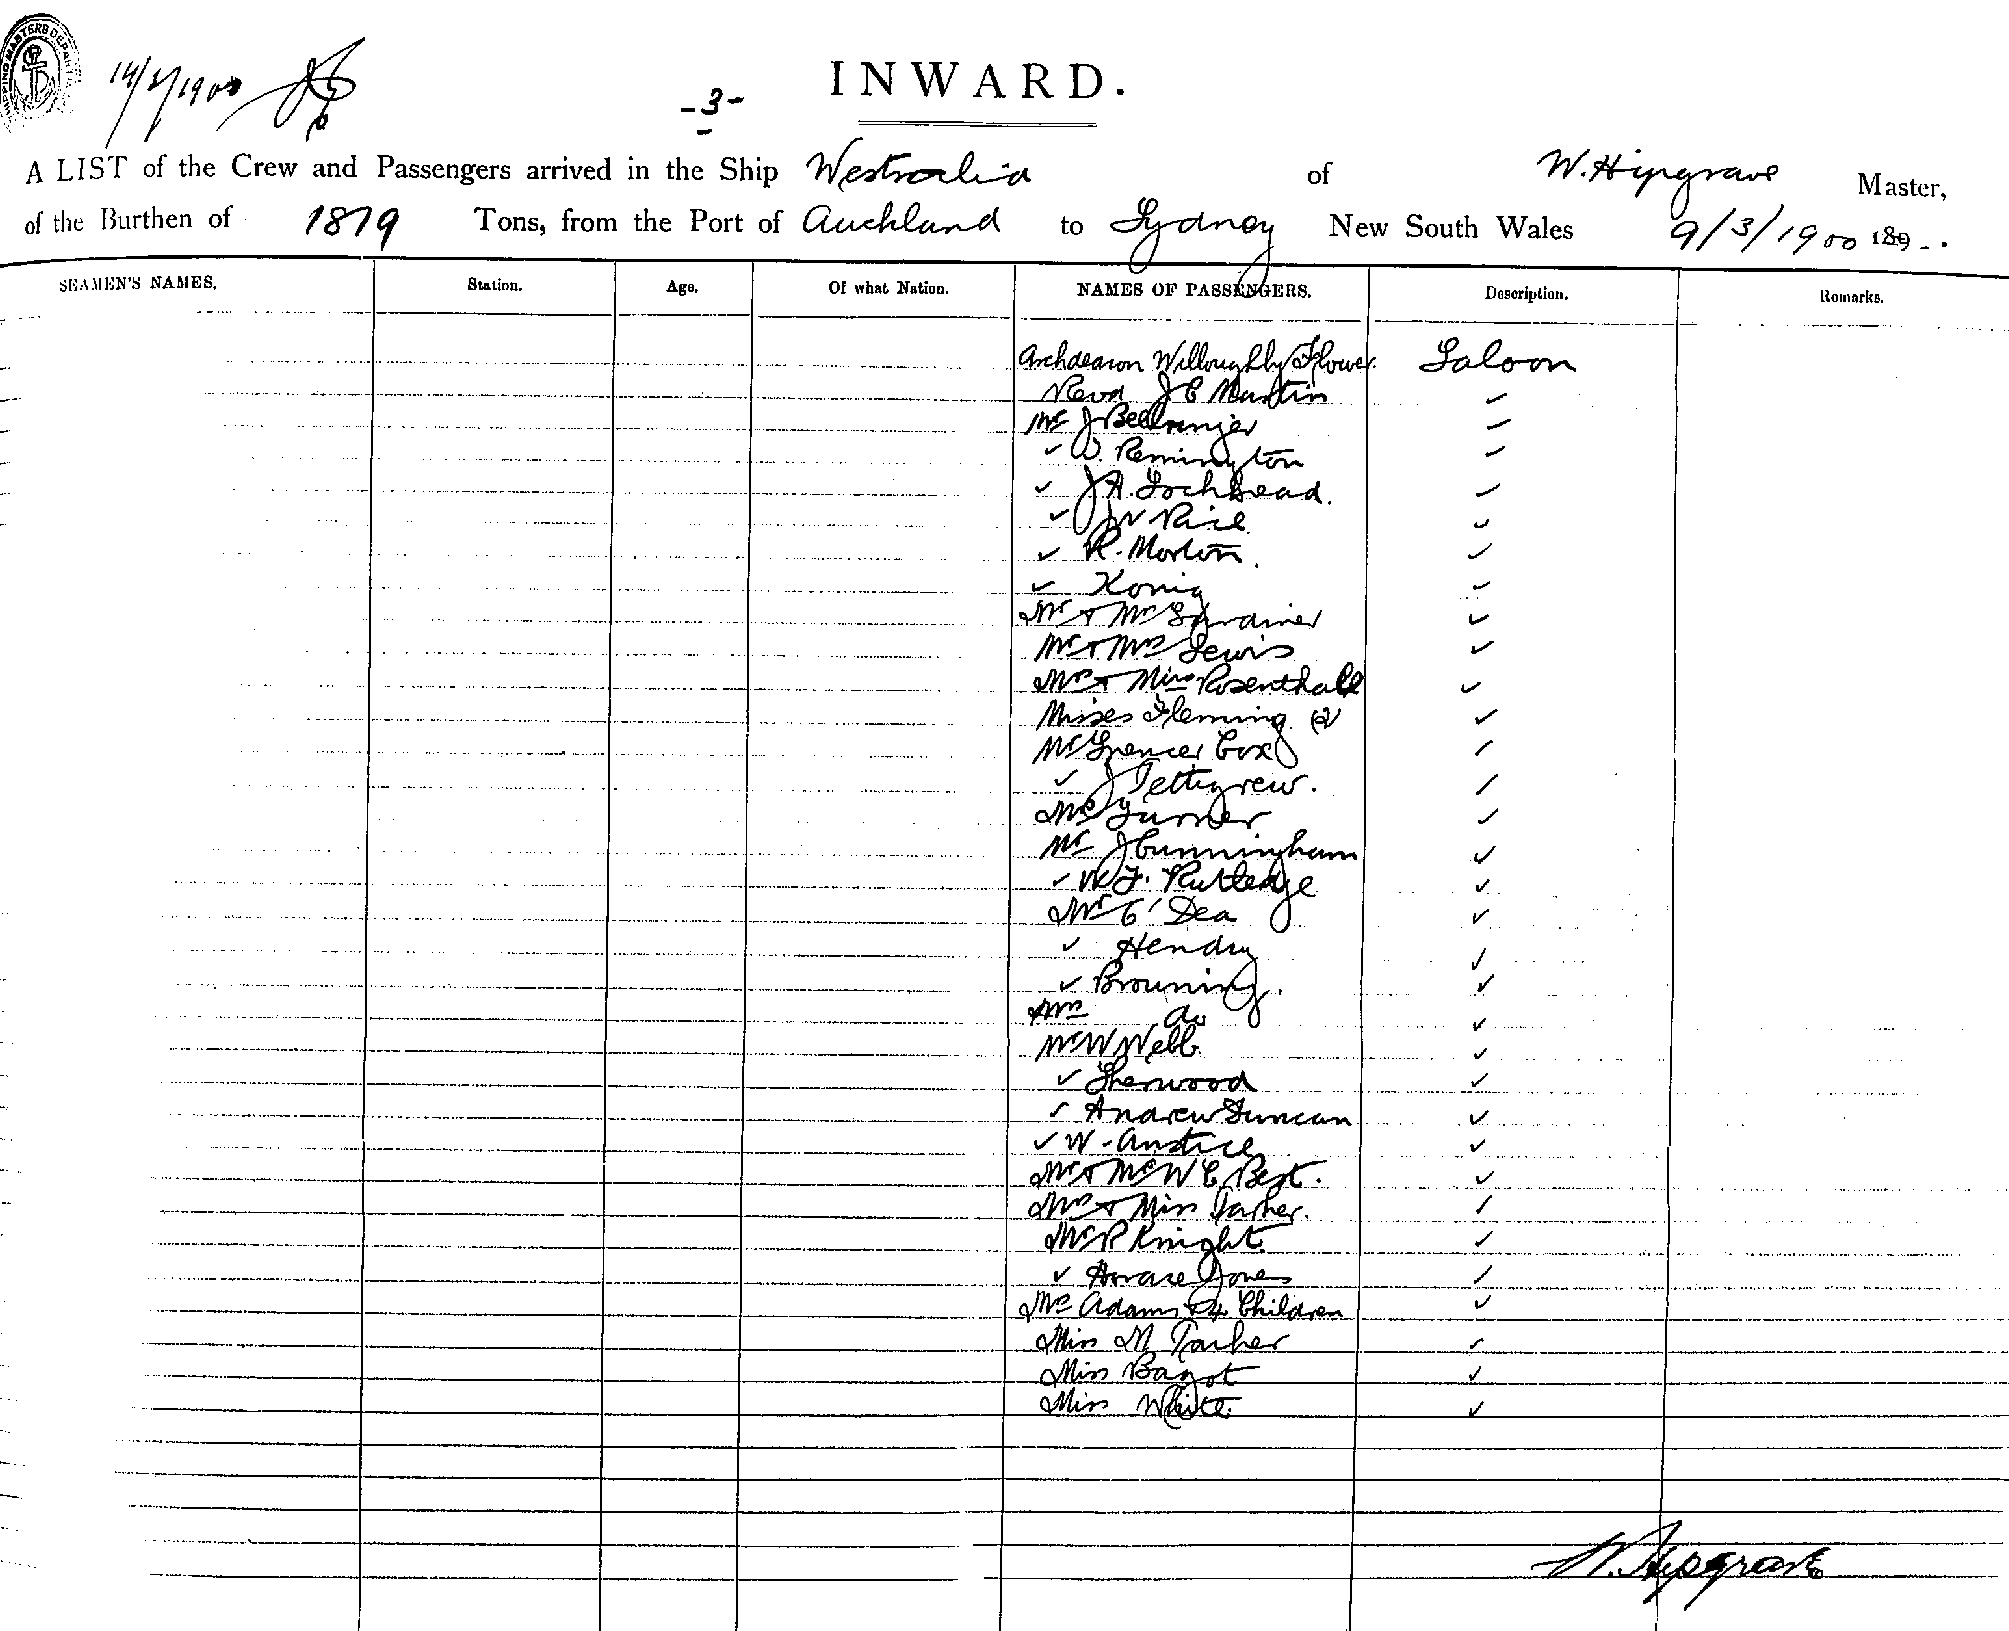 SHIPPING MASTERS DEPART
14/3/1900
-3-
INWARD.
A LIST of the Crew and Passengers arrived in the Ship Westralia of W. Hipgrave Master,
of the Burthen of 1819 Tons, from the Port of Auckland to Sydney New South Wales 9/3/1900 189-.
SEAMEN'S NAMES. Station. Age. Of what Nation. NAMES OF PASSENGERS. Description. Remarks.
Archdeacon Willoughby Flower. Saloon
Revd J E Martin ✓
Mr J Bellringer ✓
✓ W. Remington ✓
✓ J A. Lochhead. ✓
✓ J W Rice ✓
✓ R. Morton. ✓
✓ Konig ✓
Mr & Mrs Gardiner ✓
Mr & Mrs Lewis ✓
Mrs & Miss Rosenthall ✓
Misses Fleming (2) ✓
Mr Spencer Cox ✓
✓ J Pettigrew. ✓
Mr Turner ✓
Mr J Cunningham ✓
✓ W F. Rutledge ✓
Mr O'Dea ✓
✓ Hendry ✓
✓ Browning. ✓
Mrs do ✓
Mr W Webb ✓
✓ Sherwood ✓
✓ Andrew Duncan ✓
✓ W. Anstice ✓
Mr & Mrs W E Best. ✓
Mrs & Miss Parker. ✓
Mr P Knight ✓
✓ Horace Jones ✓
Mrs Adams & 4 Children ✓
Miss M Parker ✓
Miss Bagot ✓
Miss White. ✓
W. Hipgrave